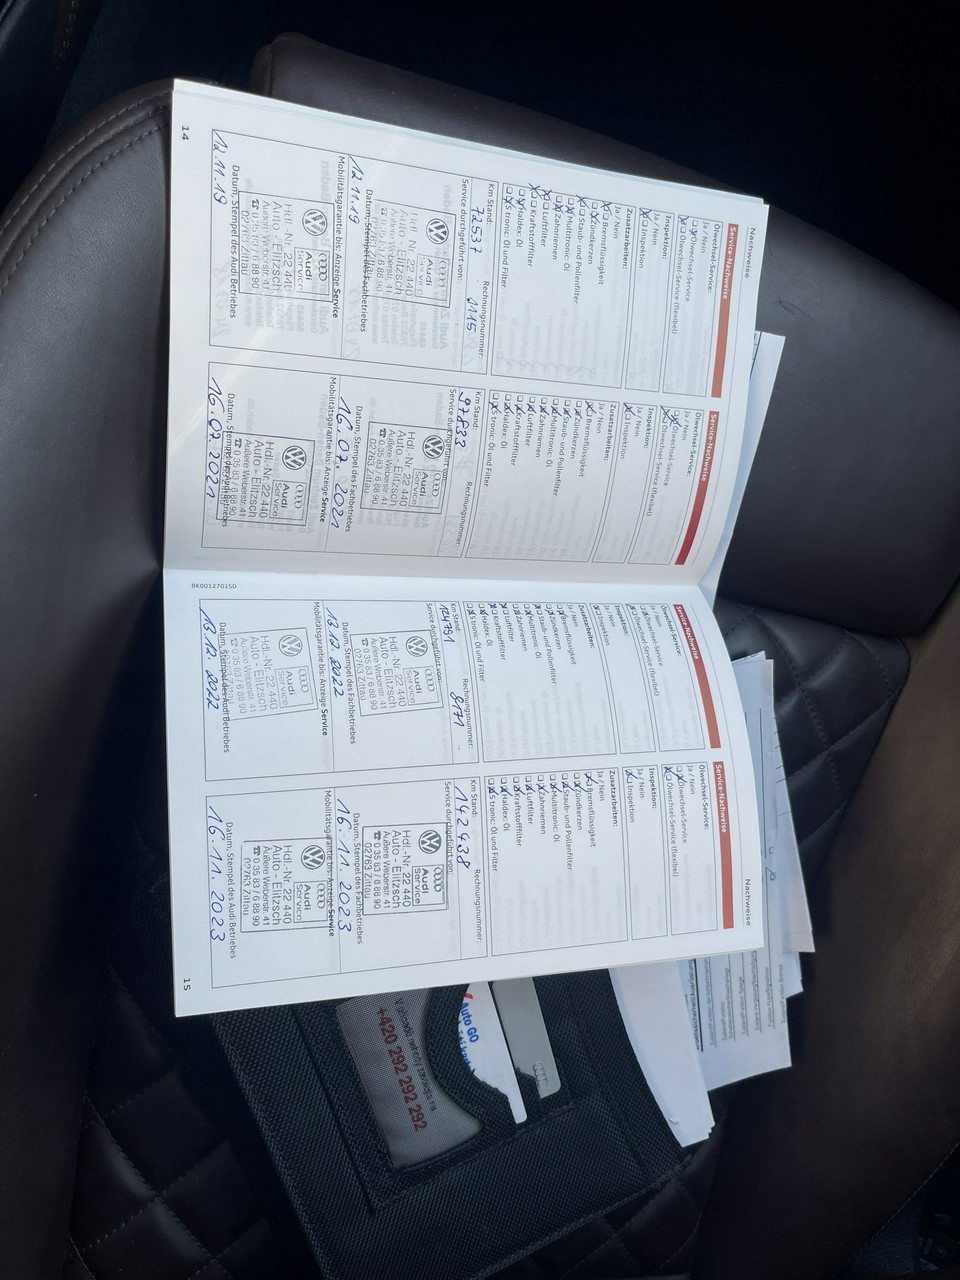 Nachweise
Service-Nachweise
Ölwechsel-Service:
Ja / Nein
Ölwechsel-Service
Ölwechsel-Service (flexibel)
Inspektion:
Ja / Nein
Inspektion
Zusatzarbeiten:
Ja / Nein
Bremsflüssigkeit
Zündkerzen
Staub- und Pollenfilter
Multitronic: Öl
Zahnriemen
Luftfilter
Kraftstofffilter
Haldex: Öl
S tronic: Öl und Filter
Km Stand: Rechnungsnummer:
72537
Service durchgeführt von:
Audi
Service
Hdl.-Nr. 22 440
Auto - Elitzsch
12.11.19
Datum, Stempel des Fachbetriebes
Mobilitätsgarantie bis: Anzeige Service
Audi
Service
Hdl.-Nr. 22 440
Auto - Elitzsch
Äußere Weberstr. 41
☎ 0 35 83 / 6 88 90
02763 Zittau
12.11.19
Datum, Stempel des Audi Betriebes
14
Service-Nachweise
Ölwechsel-Service:
Ja / Nein
Ölwechsel-Service
Ölwechsel-Service (flexibel)
Inspektion:
Ja / Nein
Inspektion
Zusatzarbeiten:
Ja / Nein
Bremsflüssigkeit
Zündkerzen
Staub- und Pollenfilter
Multitronic: Öl
Zahnriemen
Luftfilter
Kraftstofffilter
Haldex: Öl
S tronic: Öl und Filter
Km Stand: Rechnungsnummer:
97833
Service durchgeführt von:
Audi
Service
Hdl.-Nr. 22 440
Auto - Elitzsch
Äußere Weberstr. 41
☎ 0 35 83 / 6 88 90
02763 Zittau
16.07.2021
Datum, Stempel des Fachbetriebes
Mobilitätsgarantie bis: Anzeige Service
Audi
Service
Hdl.-Nr. 22 440
Auto - Elitzsch
Äußere Weberstr. 41
☎ 0 35 83 / 6 88 90
02763 Zittau
16.07.2021
Datum, Stempel des Audi Betriebes
8K0012701SD
Service-Nachweise
Ölwechsel-Service:
Ja / Nein
Ölwechsel-Service
Ölwechsel-Service (flexibel)
Inspektion:
Ja / Nein
Inspektion
Zusatzarbeiten:
Ja / Nein
Bremsflüssigkeit
Zündkerzen
Staub- und Pollenfilter
Multitronic: Öl
Zahnriemen
Luftfilter
Kraftstofffilter
Haldex: Öl
S tronic: Öl und Filter
Km Stand: Rechnungsnummer:
124791 8171
Service durchgeführt von:
Audi
Service
Hdl.-Nr. 22 440
Auto - Elitzsch
Äußere Weberstr. 41
☎ 0 35 83 / 6 88 90
02763 Zittau
13.12.2022
Datum, Stempel des Fachbetriebes
Mobilitätsgarantie bis: Anzeige Service
Audi
Service
Hdl.-Nr. 22 440
Auto - Elitzsch
Äußere Weberstr. 41
☎ 0 35 83 / 6 88 90
02763 Zittau
13.12.2022
Datum, Stempel des Audi Betriebes
Nachweise
Service-Nachweise
Ölwechsel-Service:
Ja / Nein
Ölwechsel-Service
Ölwechsel-Service (flexibel)
Inspektion:
Ja / Nein
Inspektion
Zusatzarbeiten:
Ja / Nein
Bremsflüssigkeit
Zündkerzen
Staub- und Pollenfilter
Multitronic: Öl
Zahnriemen
Luftfilter
Kraftstofffilter
Haldex: Öl
S tronic: Öl und Filter
Km Stand: Rechnungsnummer:
142438
Service durchgeführt von:
Audi
Service
Hdl.-Nr. 22 440
Auto - Elitzsch
Äußere Weberstr. 41
☎ 0 35 83 / 6 88 90
02763 Zittau
16.11.2023
Datum, Stempel des Fachbetriebes
Mobilitätsgarantie bis: Anzeige Service
Audi
Service
Hdl.-Nr. 22 440
Auto - Elitzsch
Äußere Weberstr. 41
☎ 0 35 83 / 6 88 90
02763 Zittau
16.11.2023
Datum, Stempel des Audi Betriebes
15
Auto GO
V případě nehody
+420 292 292 292